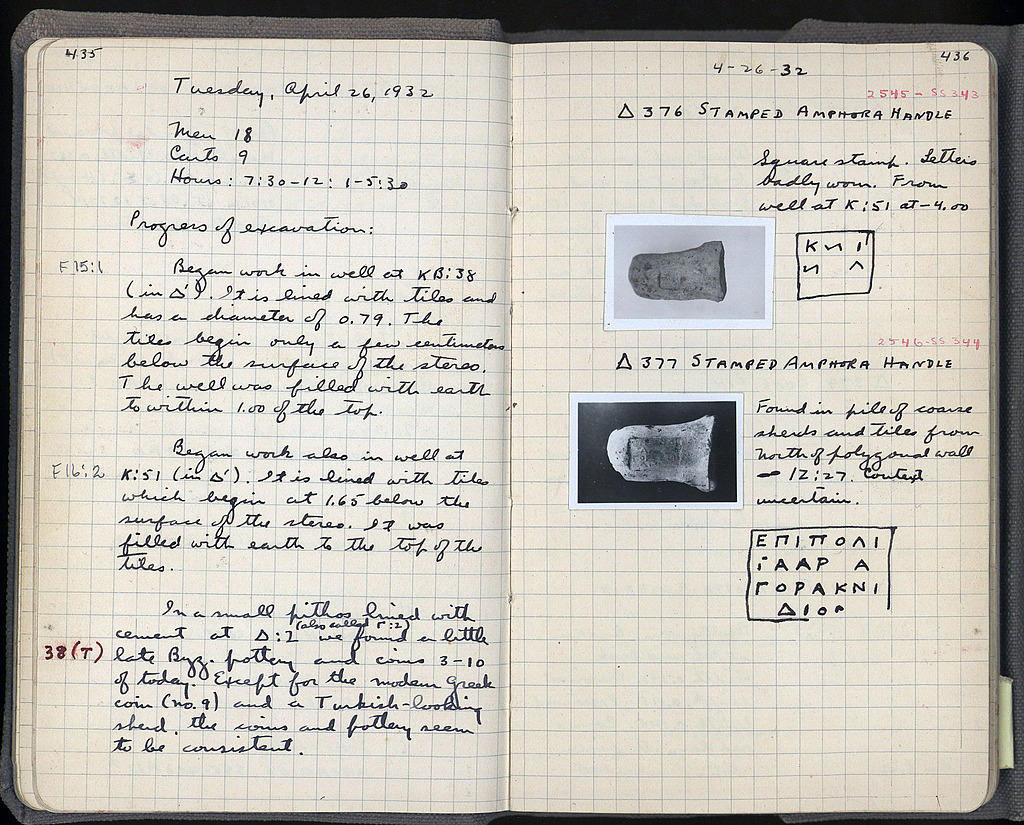 435
Tuesday, April 26, 1932
Men 18
Carts 9
Hours: 7:30-12: 1-5:30
Progress of excavation:
E15:1
Began work in well at KB:38
(in Δ'). It is lined with tiles and
has a diameter of 0.79. The
tiles begin only a few centimeters
below the surface of the stereo.
The well was filled with earth
to within 1.00 of the top.
Began work also in well at
E16:2
K:51 (in Δ'). It is lined with tiles
which begin at 1.65 below the
surface of the stereo. It was
filled with earth to the top of the
tiles.
In a small pithos lined with
(also called Γ:2)
cement at Δ:1 we found a little
38(T)
late Byz. pottery and coins 3-10
of today. Except for the modern Greek
coin (no. 9) and a Turkish-looking
sherd, the coins and pottery seem
to be consistent.
436
4-26-32
2545-SS 343
Δ 376 STAMPED AMPHORA HANDLE
Square stamp. Letters
badly worn. From
well at K:51 at -4.00
2546-SS 344
Δ 377 STAMPED AMPHORA HANDLE
Found in pile of coarse
sherds and tiles from
north of polygonal wall
- 12:27. Context
uncertain.
ΕΠΙΠΟΛΙ
ΓΑΑΡ Α
ΓΟΡΑΚΝΙ
ΔΙΟΡ